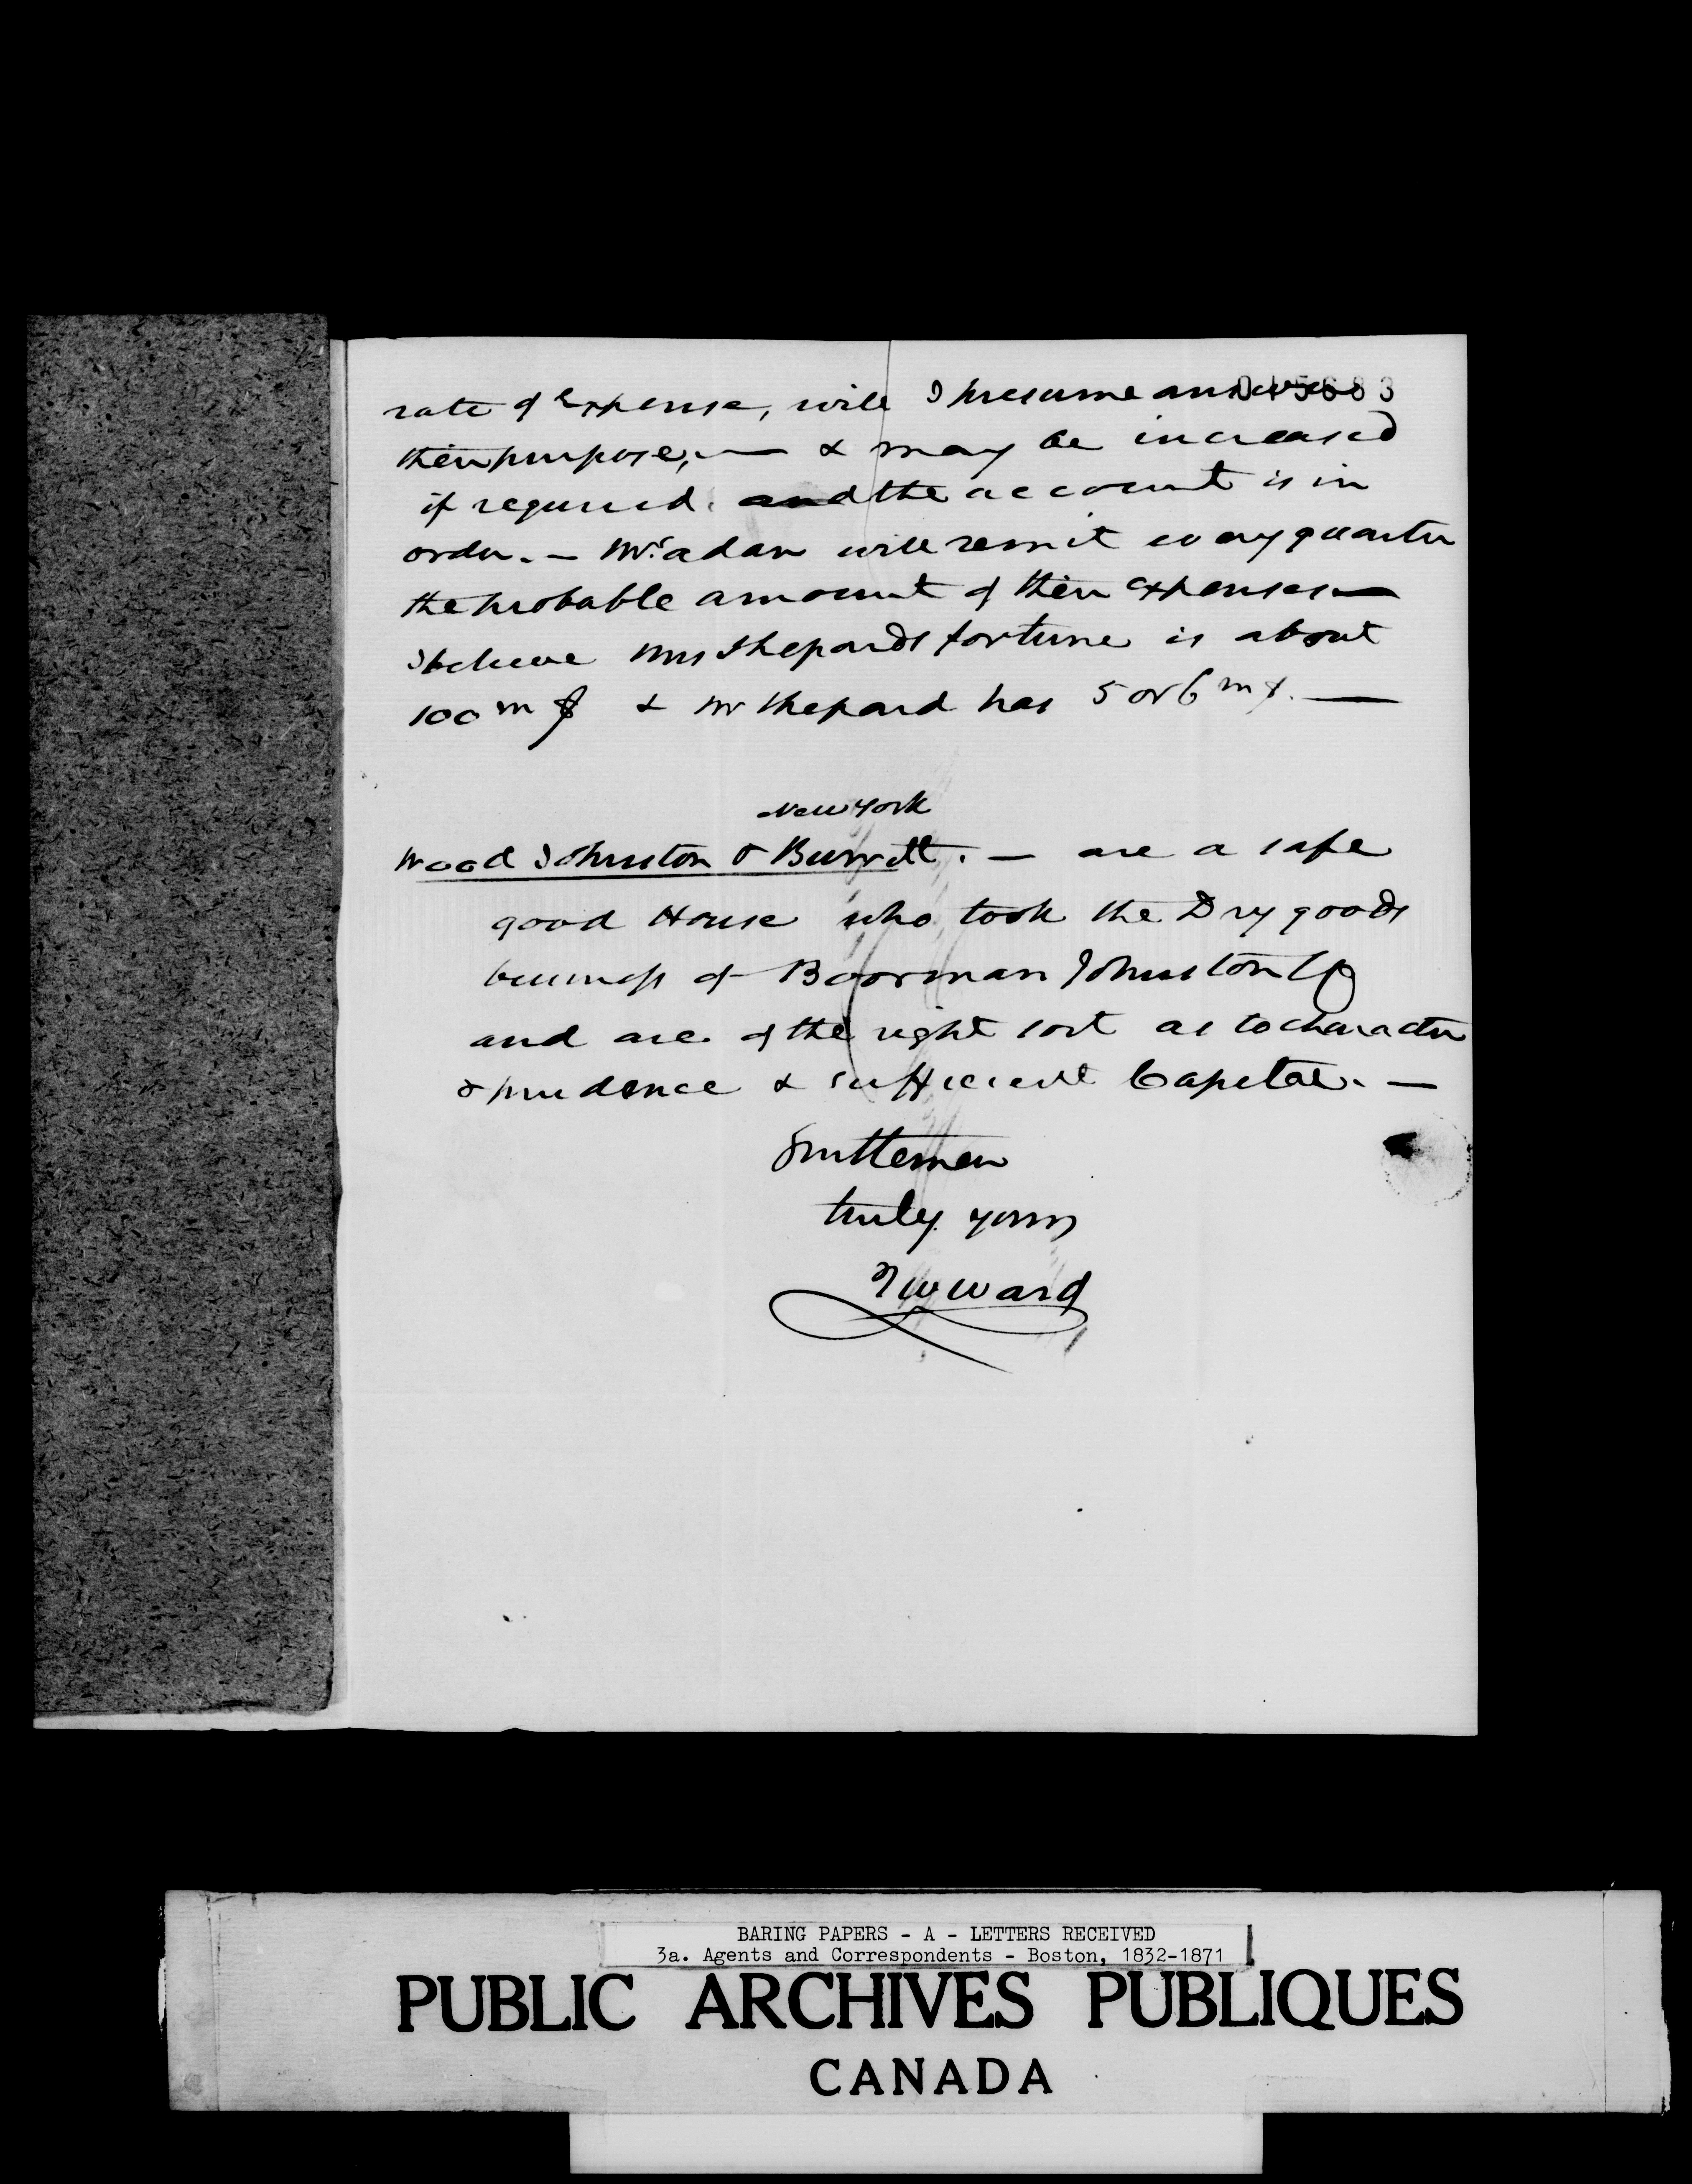 015683
rate of Expense, will I presume answer
their purpose, — & may be increased
if required. and the account is in
order. — Mr. Adan will remit every quarter
the probable amount of their expenses —
I believe Mrs Shepards fortune is about
100 m $ & Mr Shepard has 5 or 6 m $. —
New York
Wood Johnston & Burritt. — are a safe
good House who took the Dry goods
business of Boorman Johnston Co
and are of the right sort as to character
& prudence & sufficient Capital. —
Gentlemen
truly yours
T W Ward
BARING PAPERS - A - LETTERS RECEIVED
3a. Agents and Correspondents - Boston, 1832-1871
PUBLIC ARCHIVES PUBLIQUES
CANADA